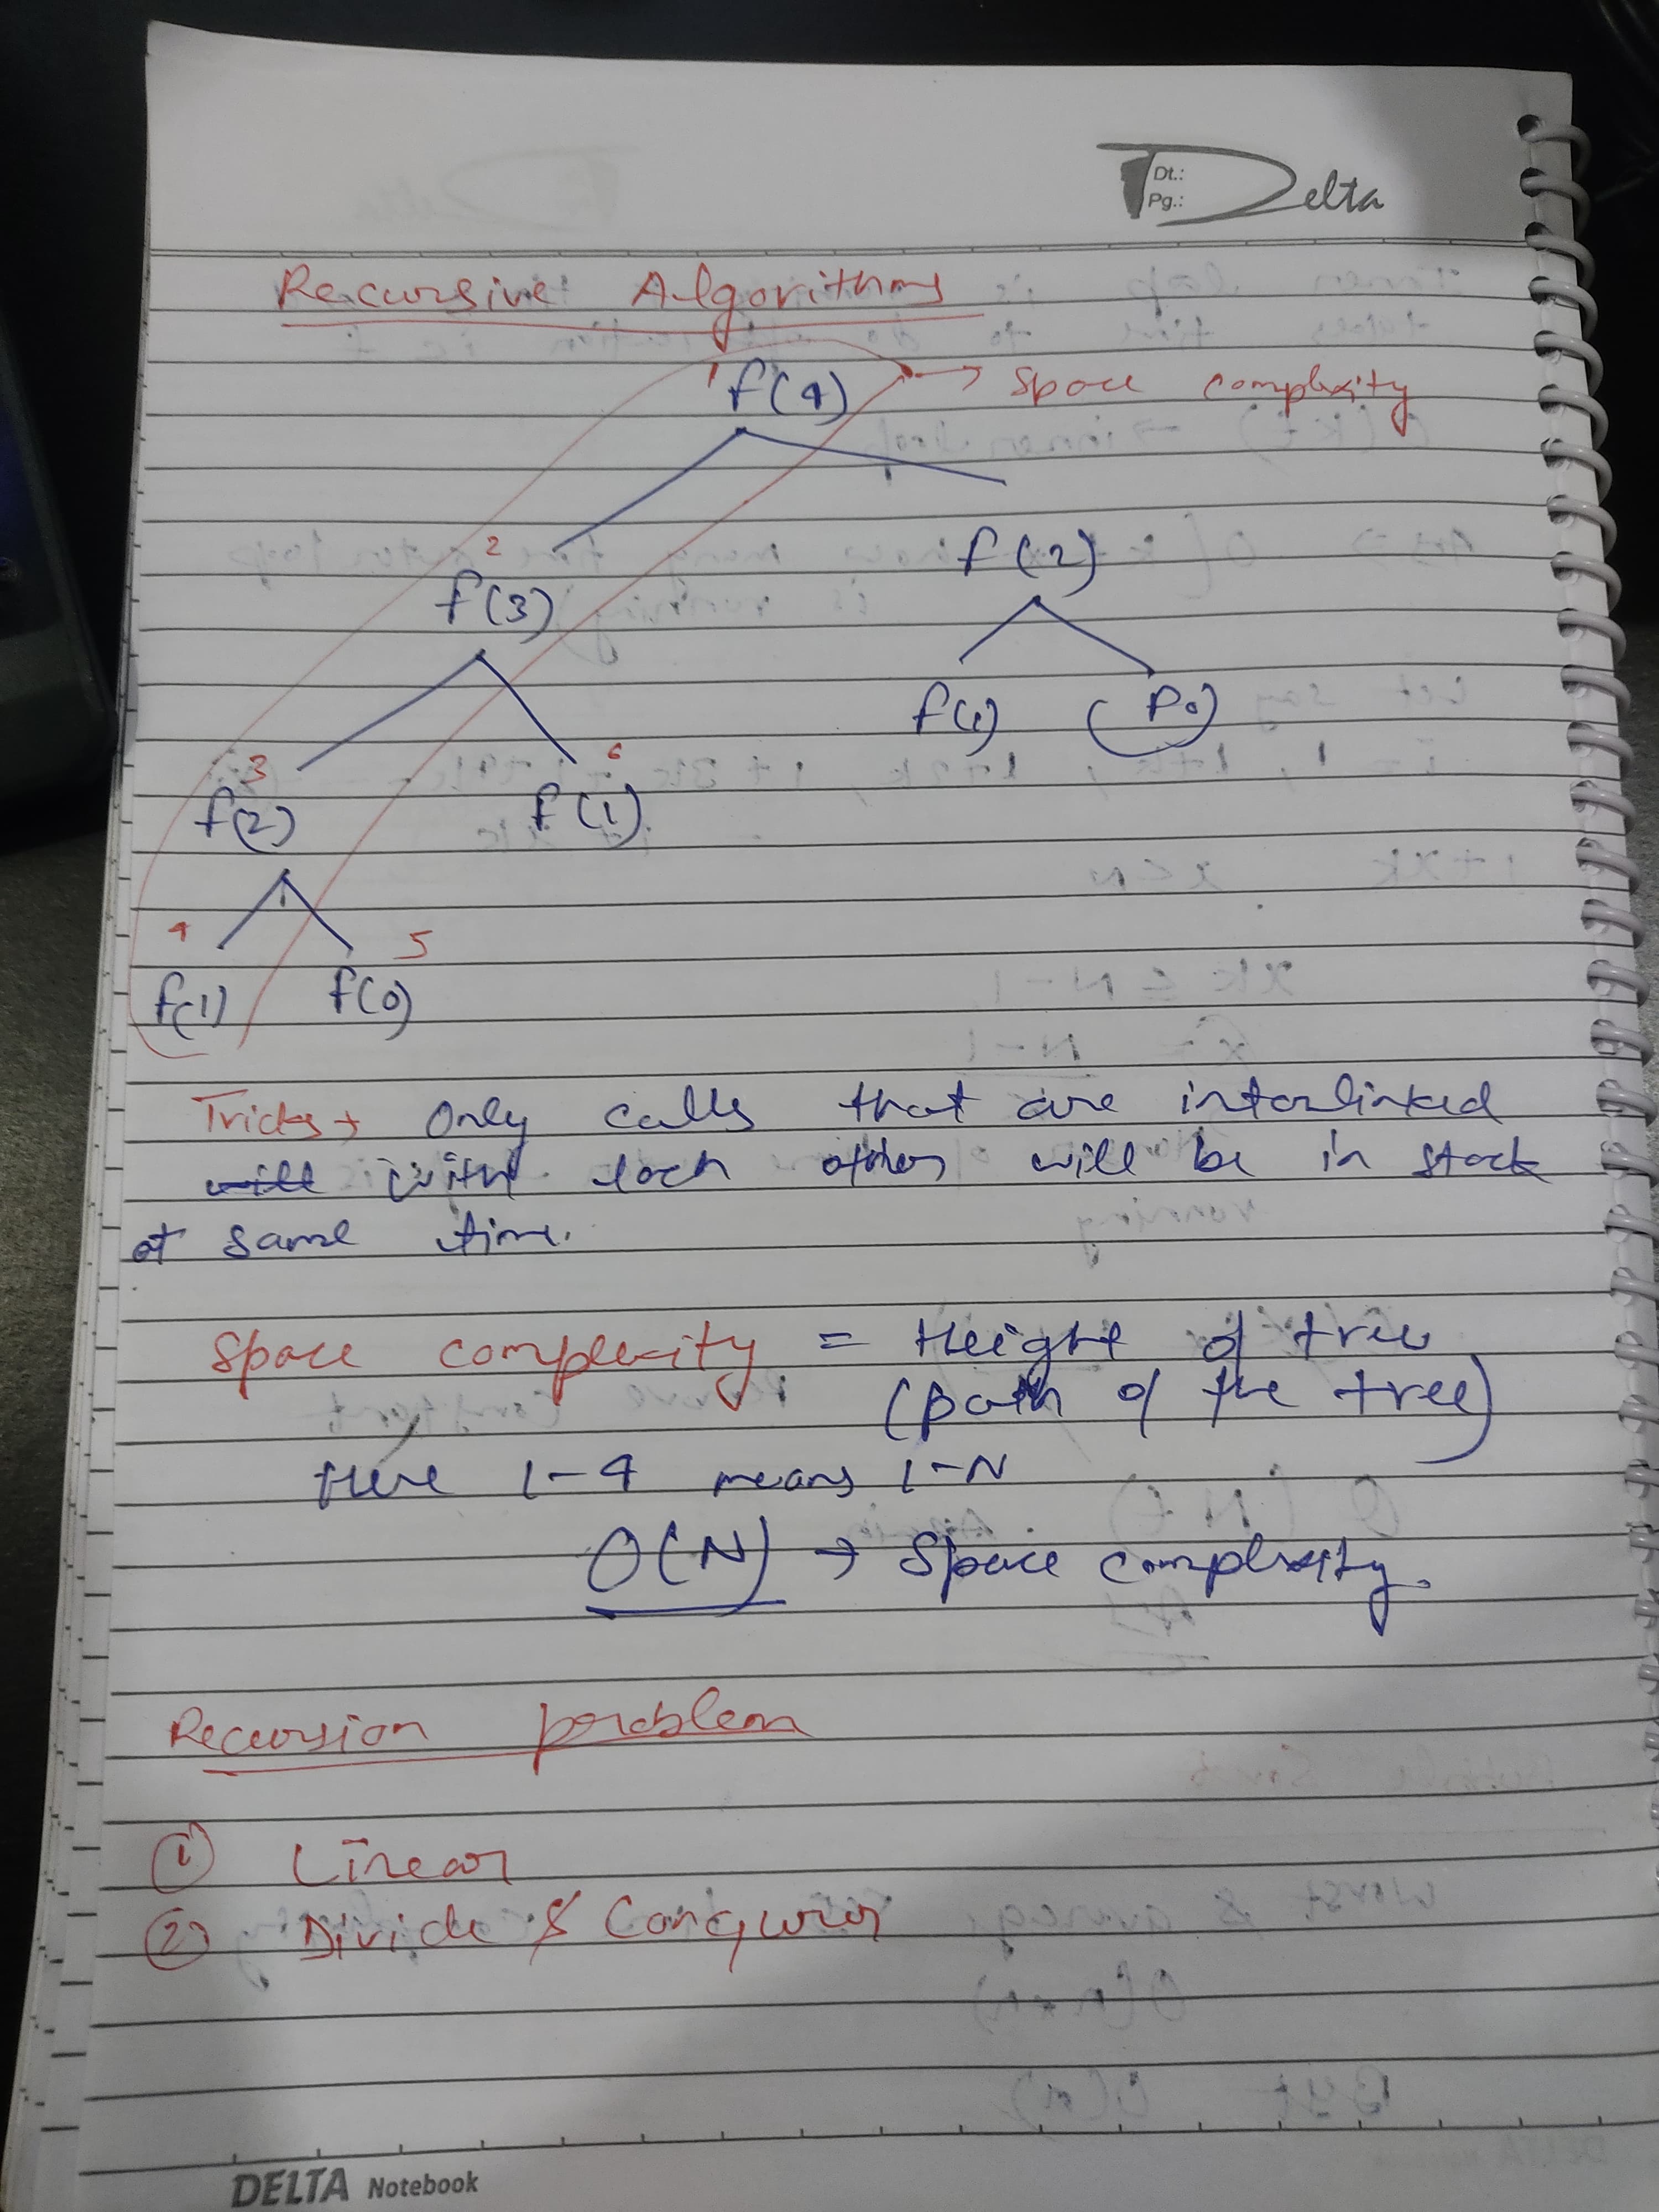 Dt.:
Pg.:
Delta
Recursive Algorithms
1 f(4) → Space complexity
2 f(3) f(2)
f(1) (F0)
3 f(2) 6 f(1)
4 f(1) 5 f(0)
Tricks → Only calls that are interlinked
will with each other will be in stack
at same time.
Space complexity = Height of tree
(path of the tree)
Here 1-4 means 1-N
O(N) → Space complexity.
Recursion problem
① Linear
② Divide & Conquer
DELTA Notebook